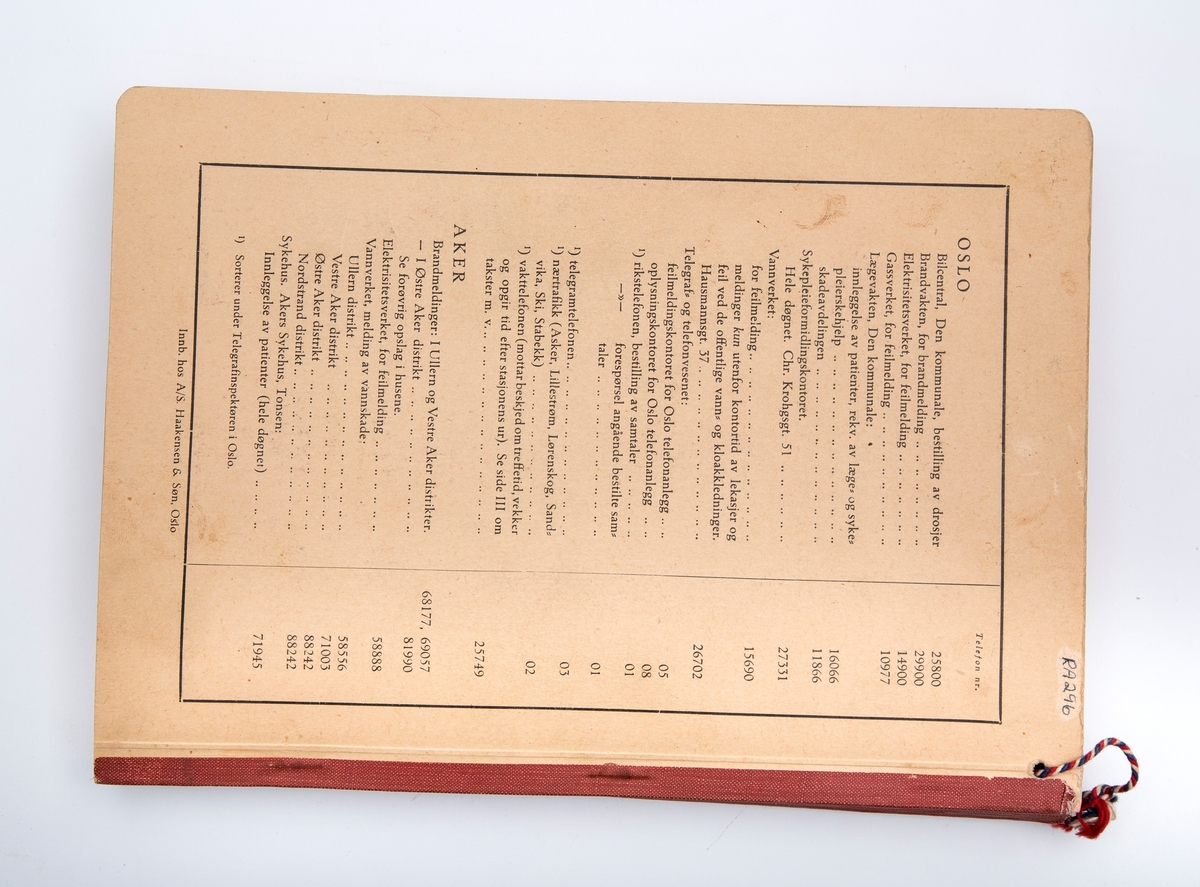 RA296
Telefon nr.
OSLO
Bilcentral, Den kommunale, bestilling av drosjer 25800
Brandvakten, for brandmelding .. .. .. .. .. .. 29900
Elektrisitetsverket, for feilmelding .. .. .. .. .. 14900
Gassverket, for feilmelding .. .. .. .. .. .. .. 10977
Lægevakten, Den kommunale:
innleggelse av patienter, rekv. av læge- og syke-
pleierskehjelp .. .. .. .. .. .. .. .. .. 16066
skadeavdelingen .. .. .. .. .. .. .. .. .. 11866
Sykepleieformidlingskontoret.
Hele døgnet. Chr. Krohgsgt. 51 .. .. .. .. 27331
Vannverket:
for feilmelding .. .. .. .. .. .. .. .. .. 15690
meldinger kun utenfor kontortid av lekasjer og
feil ved de offentlige vann- og kloakkledninger.
Hausmannsgt. 37 .. .. .. .. .. .. .. .. 26702
Telegraf- og telefonvesenet:
feilmeldingskontoret for Oslo telefonanlegg .. .. 05
oplysningskontoret for Oslo telefonanlegg .. .. 08
¹) rikstelefonen, bestilling av samtaler .. .. .. .. 01
—»— forespørsel angående bestilte sam-
taler .. .. .. .. .. .. .. .. 01
¹) telegramtelefonen .. .. .. .. .. .. .. .. ..
¹) nærtrafikk (Asker, Lillestrøm, Lørenskog, Sand- 03
vika, Ski, Stabekk) .. .. .. .. .. .. .. ..
¹) vakttelefonen (mottar beskjed om treffetid, vekker 02
og opgir tid efter stasjonens ur). Se side III om
takster m. v. .. .. .. .. .. .. .. .. .. 25749
AKER
Brandmeldinger: I Ullern og Vestre Aker distrikter. 68177, 69057
— I Østre Aker distrikt .. .. .. .. .. .. 81990
Se forøvrig opslag i husene.
Elektrisitetsverket, for feilmelding .. .. .. .. .. 58888
Vannverket, melding av vannskade:
Ullern distrikt .. .. .. .. .. .. .. .. .. 58556
Vestre Aker distrikt .. .. .. .. .. .. .. .. 71003
Østre Aker distrikt .. .. .. .. .. .. .. .. 88242
Nordstrand distrikt .. .. .. .. .. .. .. .. 88242
Sykehus. Akers Sykehus, Tonsen:
Innleggelse av patienter (hele døgnet) .. .. .. 71945
¹) Sorterer under Telegrafinspektøren i Oslo.
Innb. hos A/S. Haakensen & Søn, Oslo